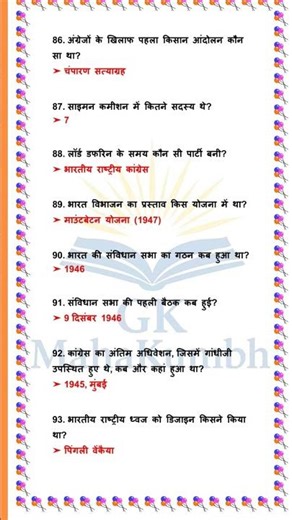 86. अंग्रेजों के खिलाफ पहला किसान आंदोलन कौन
सा था?
➤ चंपारण सत्याग्रह
87. साइमन कमीशन में कितने सदस्य थे?
➤ 7
88. लॉर्ड डफरिन के समय कौन सी पार्टी बनी?
➤ भारतीय राष्ट्रीय कांग्रेस
89. भारत विभाजन का प्रस्ताव किस योजना में था?
➤ माउंटबेटन योजना (1947)
90. भारत की संविधान सभा का गठन कब हुआ था?
➤ 1946
91. संविधान सभा की पहली बैठक कब हुई?
➤ 9 दिसंबर 1946
GK
MahaKumbh
92. कांग्रेस का अंतिम अधिवेशन, जिसमें गांधीजी
उपस्थित हुए थे, कब और कहां हुआ था?
➤ 1945, मुंबई
93. भारतीय राष्ट्रीय ध्वज को डिजाइन किसने किया
था?
➤ पिंगली वेंकैया